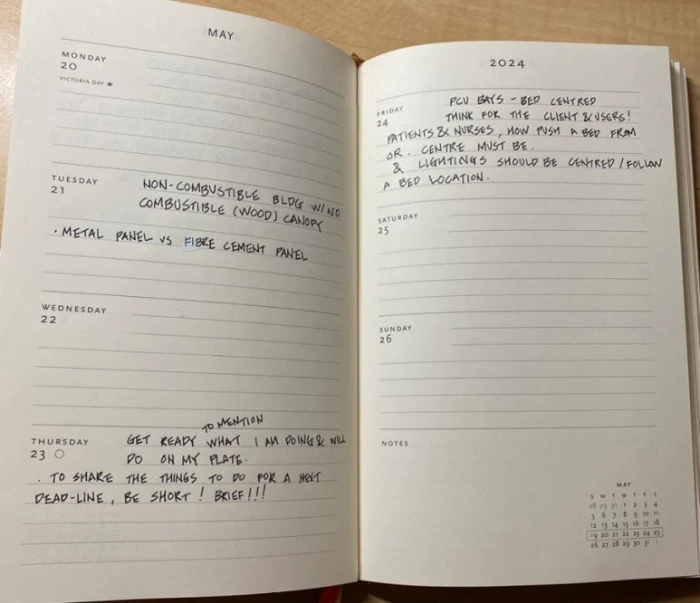 MAY
MONDAY
20
VICTORIA DAY
TUESDAY
21
NON-COMBUSTIBLE BLDG W/ NO
COMBUSTIBLE (WOOD) CANOPY
· METAL PANEL VS FIBRE CEMENT PANEL
WEDNESDAY
22
THURSDAY
23
TO MENTION
GET READY WHAT I AM DOING & WILL
DO ON MY PLATE.
· TO SHARE THE THINGS TO DO FOR A NEXT
DEAD-LINE, BE SHORT! BRIEF!!!
2024
FRIDAY
24
PCU BAYS - BED CENTRED
THINK FOR THE CLIENT & USERS!
PATIENTS & NURSES, HOW PUSH A BED FROM
OR. CENTRE MUST BE.
& LIGHTINGS SHOULD BE CENTRED / FOLLOW
A BED LOCATION.
SATURDAY
25
SUNDAY
26
NOTES
MAY
S M T W T F S
28 29 30 1 2 3 4
5 6 7 8 9 10 11
12 13 14 15 16 17 18
19 20 21 22 23 24 25
26 27 28 29 30 31 1